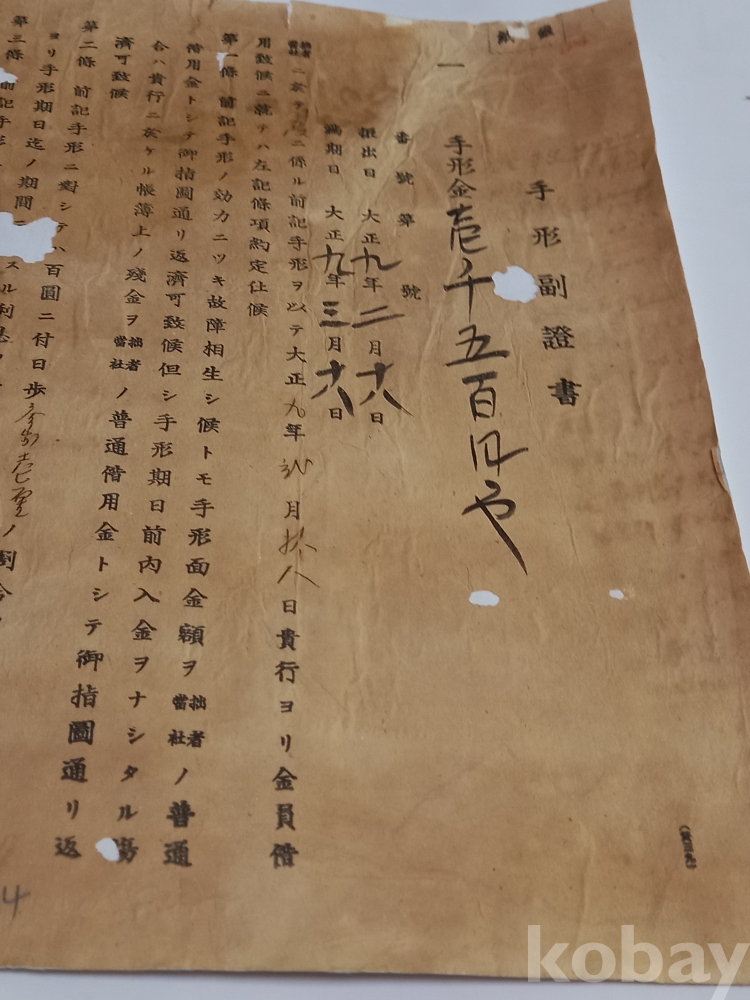 手形副證書
一 手形金壱千五百円や
番號第 號
振出日 大正九年二月十八日
満期日 大正九年三月十八日
拙者當社ニ於テ ニ係ル前記手形ヲ以テ大正九年弐月拾八日貴行ヨリ金員借
用致候ニ就テハ左記條項約定仕候
第一條 前記手形ノ効力ニツキ故障相生シ候トモ手形面金額ヲ拙者當社ノ普通
借用金トシテ御指圖通リ返濟可致候但シ手形期日前内入金ヲナシタル場
合ハ貴行ニ於ケル帳簿上ノ殘金ヲ拙者當社ノ普通借用金トシテ御指圖通リ返
濟可致候
第二條 前記手形ニ對シテハ百圓ニ付日歩
ヨリ手形期日迄ノ期間ニ スル利息
第三條 前記手形
ノ割合
(貸三九)
4
kobay